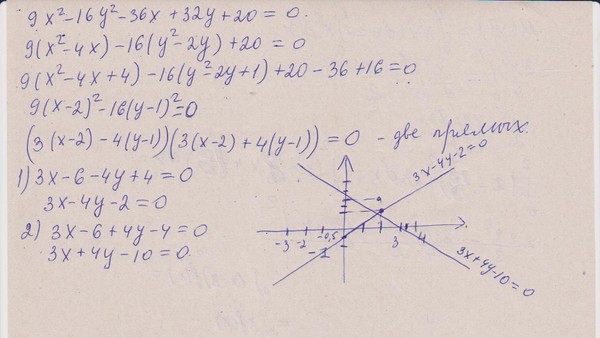 9x²-16y²-36x+32y+20=0.
9(x²-4x)-16(y²-2y)+20=0
9(x²-4x+4)-16(y²-2y+1)+20-36+16=0
9(x-2)²-16(y-1)²=0
(3(x-2)-4(y-1))(3(x-2)+4(y-1))=0 - две прямых.
1) 3x-6-4y+4=0
3x-4y-2=0
2) 3x-6+4y-4=0
3x+4y-10=0.
3x-4y-2=0
-3 -2 -0,5 3 4
3x+4y-10=0